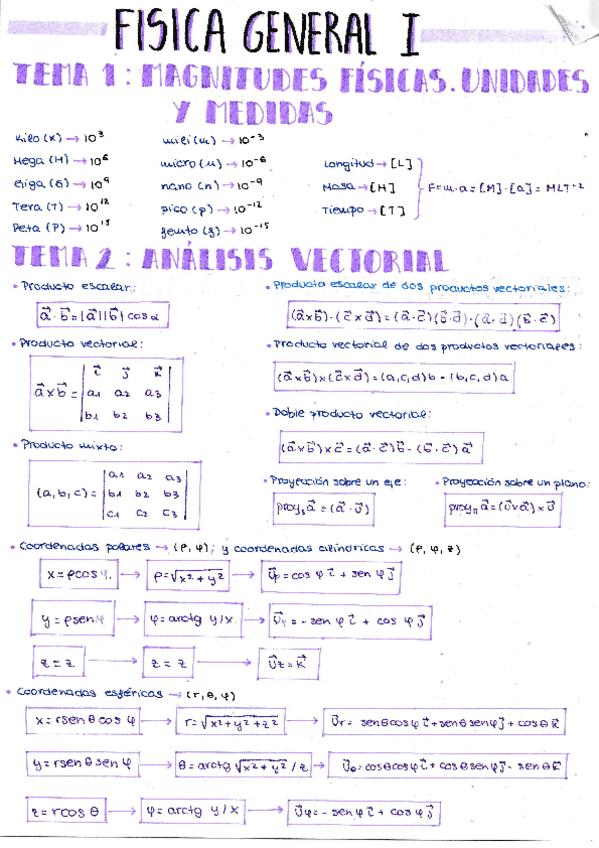 FISICA GENERAL I
TEMA 1: MAGNITUDES FÍSICAS. UNIDADES
Y MEDIDAS
Kilo (K) → 10³
Mega (M) → 10⁶
Giga (G) → 10⁹
Tera (T) → 10¹²
Peta (P) → 10¹⁵
mili (m) → 10⁻³
micro (μ) → 10⁻⁶
nano (n) → 10⁻⁹
pico (p) → 10⁻¹²
femto (f) → 10⁻¹⁵
Longitud → [L]
Masa → [M]
Tiempo → [T]
F = m·a = [M]·[a] = MLT⁻²
TEMA 2: ANÁLISIS VECTORIAL
• Producto escalar:
a⃗·b⃗ = |a⃗||b⃗| cos α
• Producto vectorial:
a⃗×b⃗ = | i⃗ j⃗ k⃗ |
| a1 a2 a3 |
| b1 b2 b3 |
• Producto mixto:
(a, b, c) = | a1 a2 a3 |
| b1 b2 b3 |
| c1 c2 c3 |
• Producto escalar de dos productos vectoriales:
(a⃗×b⃗)·(c⃗×d⃗) = (a⃗·c⃗)(b⃗·d⃗)·(a⃗·d⃗)(b⃗·c⃗)
• Producto vectorial de dos productos vectoriales:
(a⃗×b⃗)×(c⃗×d⃗) = (a,c,d)b - (b,c,d)a
• Doble producto vectorial:
(a⃗×b⃗)×c⃗ = (a⃗·c⃗)b⃗ - (b⃗·c⃗)a⃗
• Proyección sobre un eje:
proyₛ a⃗ = (a⃗·u⃗)
• Proyección sobre un plano:
proy_π a⃗ = (u⃗×a⃗)×u⃗
• Coordenadas polares → (ρ, φ); y coordenadas cilíndricas → (ρ, φ, z)
x = ρcos φ → ρ = √x²+y² → u⃗ρ = cos φ i⃗ + sen φ j⃗
y = ρsen φ → φ = arctg y/x → u⃗φ = - sen φ i⃗ + cos φ j⃗
z = z → z = z → u⃗z = k⃗
• Coordenadas esféricas → (r, θ, φ)
x = rsen θ cos φ → r = √x²+y²+z² → u⃗r = senθcosφ i⃗ + senθsenφ j⃗ + cosθ k⃗
y = rsen θ sen φ → θ = arctg √x²+y² / z → u⃗θ = cosθcosφ i⃗ + cosθsenφ j⃗ - senθ k⃗
z = rcos θ → φ = arctg y/x → u⃗φ = - senφ i⃗ + cosφ j⃗